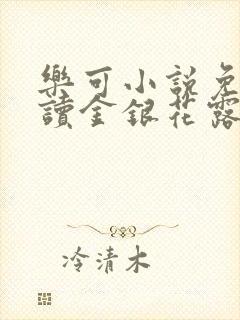 樂可小説免
讀金銀花露
冷清木